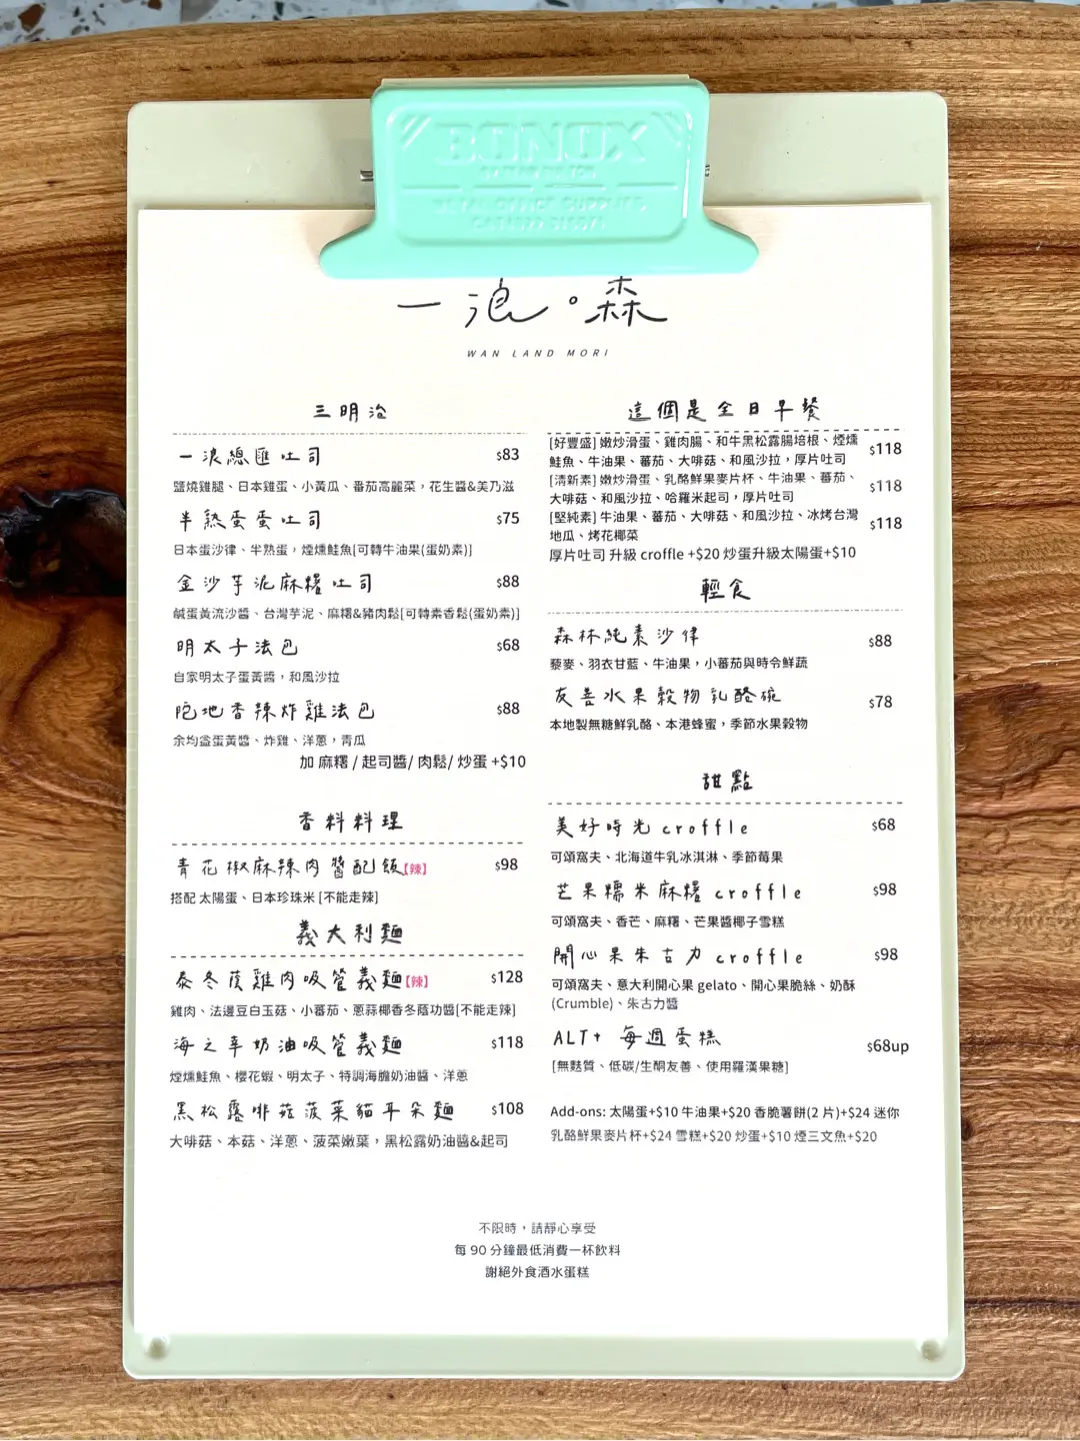 BONOX
一浪。森
WAN LAND MORI
三明治
一浪總匯吐司 $83
鹽燒雞腿、日本雞蛋、小黃瓜、番茄高麗菜，花生醬&美乃滋
半熟蛋蛋吐司 $75
日本蛋沙律、半熟蛋，煙燻鮭魚[可轉牛油果(蛋奶素)]
金沙芋泥麻糬吐司 $88
鹹蛋黃流沙醬、台灣芋泥、麻糬&豬肉鬆[可轉素香鬆(蛋奶素)]
明太子法包 $68
自家明太子蛋黃醬，和風沙拉
陀地香辣炸雞法包 $88
余均益蛋黃醬、炸雞、洋蔥，青瓜
加 麻糬 / 起司醬/ 肉鬆/ 炒蛋 +$10
香料料理
青花椒麻辣肉醬配飯【辣】 $98
搭配 太陽蛋、日本珍珠米 [不能走辣]
義大利麵
泰冬蔭雞肉吸管義麵【辣】 $128
雞肉、法邊豆白玉菇、小蕃茄、蔥蒜椰香冬蔭功醬[不能走辣]
海之幸奶油吸管義麵 $118
煙燻鮭魚、櫻花蝦、明太子、特調海膽奶油醬、洋蔥
黑松露啡菇菠菜貓耳朵麵 $108
大啡菇、本菇、洋蔥、菠菜嫩葉，黑松露奶油醬&起司
這個是全日早餐
[好豐盛] 嫩炒滑蛋、雞肉腸、和牛黑松露腸培根、煙燻 $118
鮭魚、牛油果、蕃茄、大啡菇、和風沙拉，厚片吐司
[清新素] 嫩炒滑蛋、乳酪鮮果麥片杯、牛油果、蕃茄、 $118
大啡菇、和風沙拉、哈羅米起司，厚片吐司
[堅純素] 牛油果、蕃茄、大啡菇、和風沙拉、冰烤台灣 $118
地瓜、烤花椰菜
厚片吐司 升級 croffle +$20 炒蛋升級太陽蛋+$10
輕食
森林純素沙律 $88
藜麥、羽衣甘藍、牛油果，小蕃茄與時令鮮蔬
友善水果穀物乳酪碗 $78
本地製無糖鮮乳酪、本港蜂蜜，季節水果穀物
甜點
美好時光 croffle $68
可頌窩夫、北海道牛乳冰淇淋、季節莓果
芒果糯米麻糬 croffle $98
可頌窩夫、香芒、麻糬、芒果醬椰子雪糕
開心果朱古力 croffle $98
可頌窩夫、意大利開心果 gelato、開心果脆絲、奶酥
(Crumble)、朱古力醬
ALT+ 每週蛋糕 $68up
[無麩質、低碳/生酮友善、使用羅漢果糖]
Add-ons: 太陽蛋+$10 牛油果+$20 香脆薯餅(2 片)+$24 迷你
乳酪鮮果麥片杯+$24 雪糕+$20 炒蛋+$10 煙三文魚+$20
不限時，請靜心享受
每 90 分鐘最低消費一杯飲料
謝絕外食酒水蛋糕